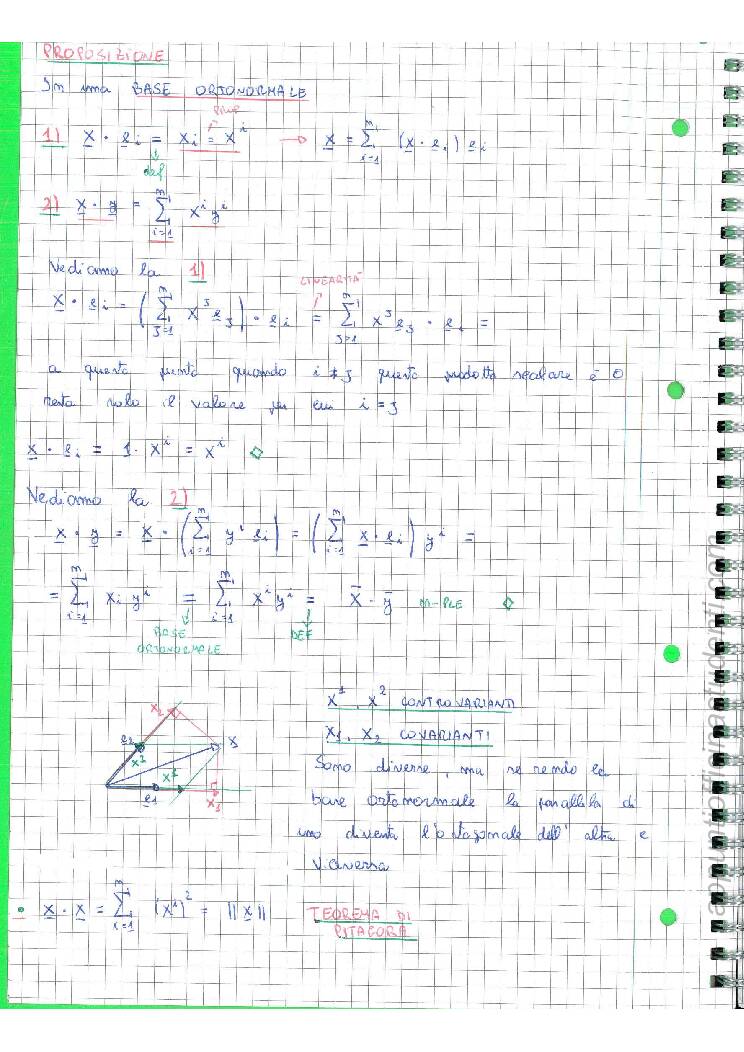 PROPOSIZIONE
In una BASE ORTONORMALE
PROP
1) x · e_i = x_i = x^i → x = ∑_{i=1}^{n} (x · e_i) e_i
def
2) x · y = ∑_{i=1}^{n} x^i y^i
Vediamo la 1)
LINEARITÀ
x · e_i = (∑_{j=1}^{n} x^j e_j) · e_i = ∑_{j=1}^{n} x^j e_j · e_i =
a questo punto quando i ≠ j questo prodotto scalare è 0
resta solo il valore per cui i = j
x · e_i = 1 · x^i = x^i ◇
Vediamo la 2)
x · y = x · (∑_{i=1}^{n} y^i e_i) = (∑_{i=1}^{n} x · e_i) y^i =
= ∑_{i=1}^{n} x_i y^i = ∑_{i=1}^{n} x^i y^i = x̄ · ȳ n-PLE ◇
BASE ORTONORMALE DEF
x_2 x
e_2 x^2 x^1
e_1 x_1
x^1, x^2 CONTROVARIANTI
x_1, x_2 COVARIANTI
Sono diverse, ma se rendo la
base ortonormale la parallela di
uno diventa l'ortogonale dell'altra e
v.versa
• x · x = ∑_{i=1}^{n} (x^i)^2 = ||x|| TEOREMA DI
PITAGORA
appuntiofficinastudenti.com